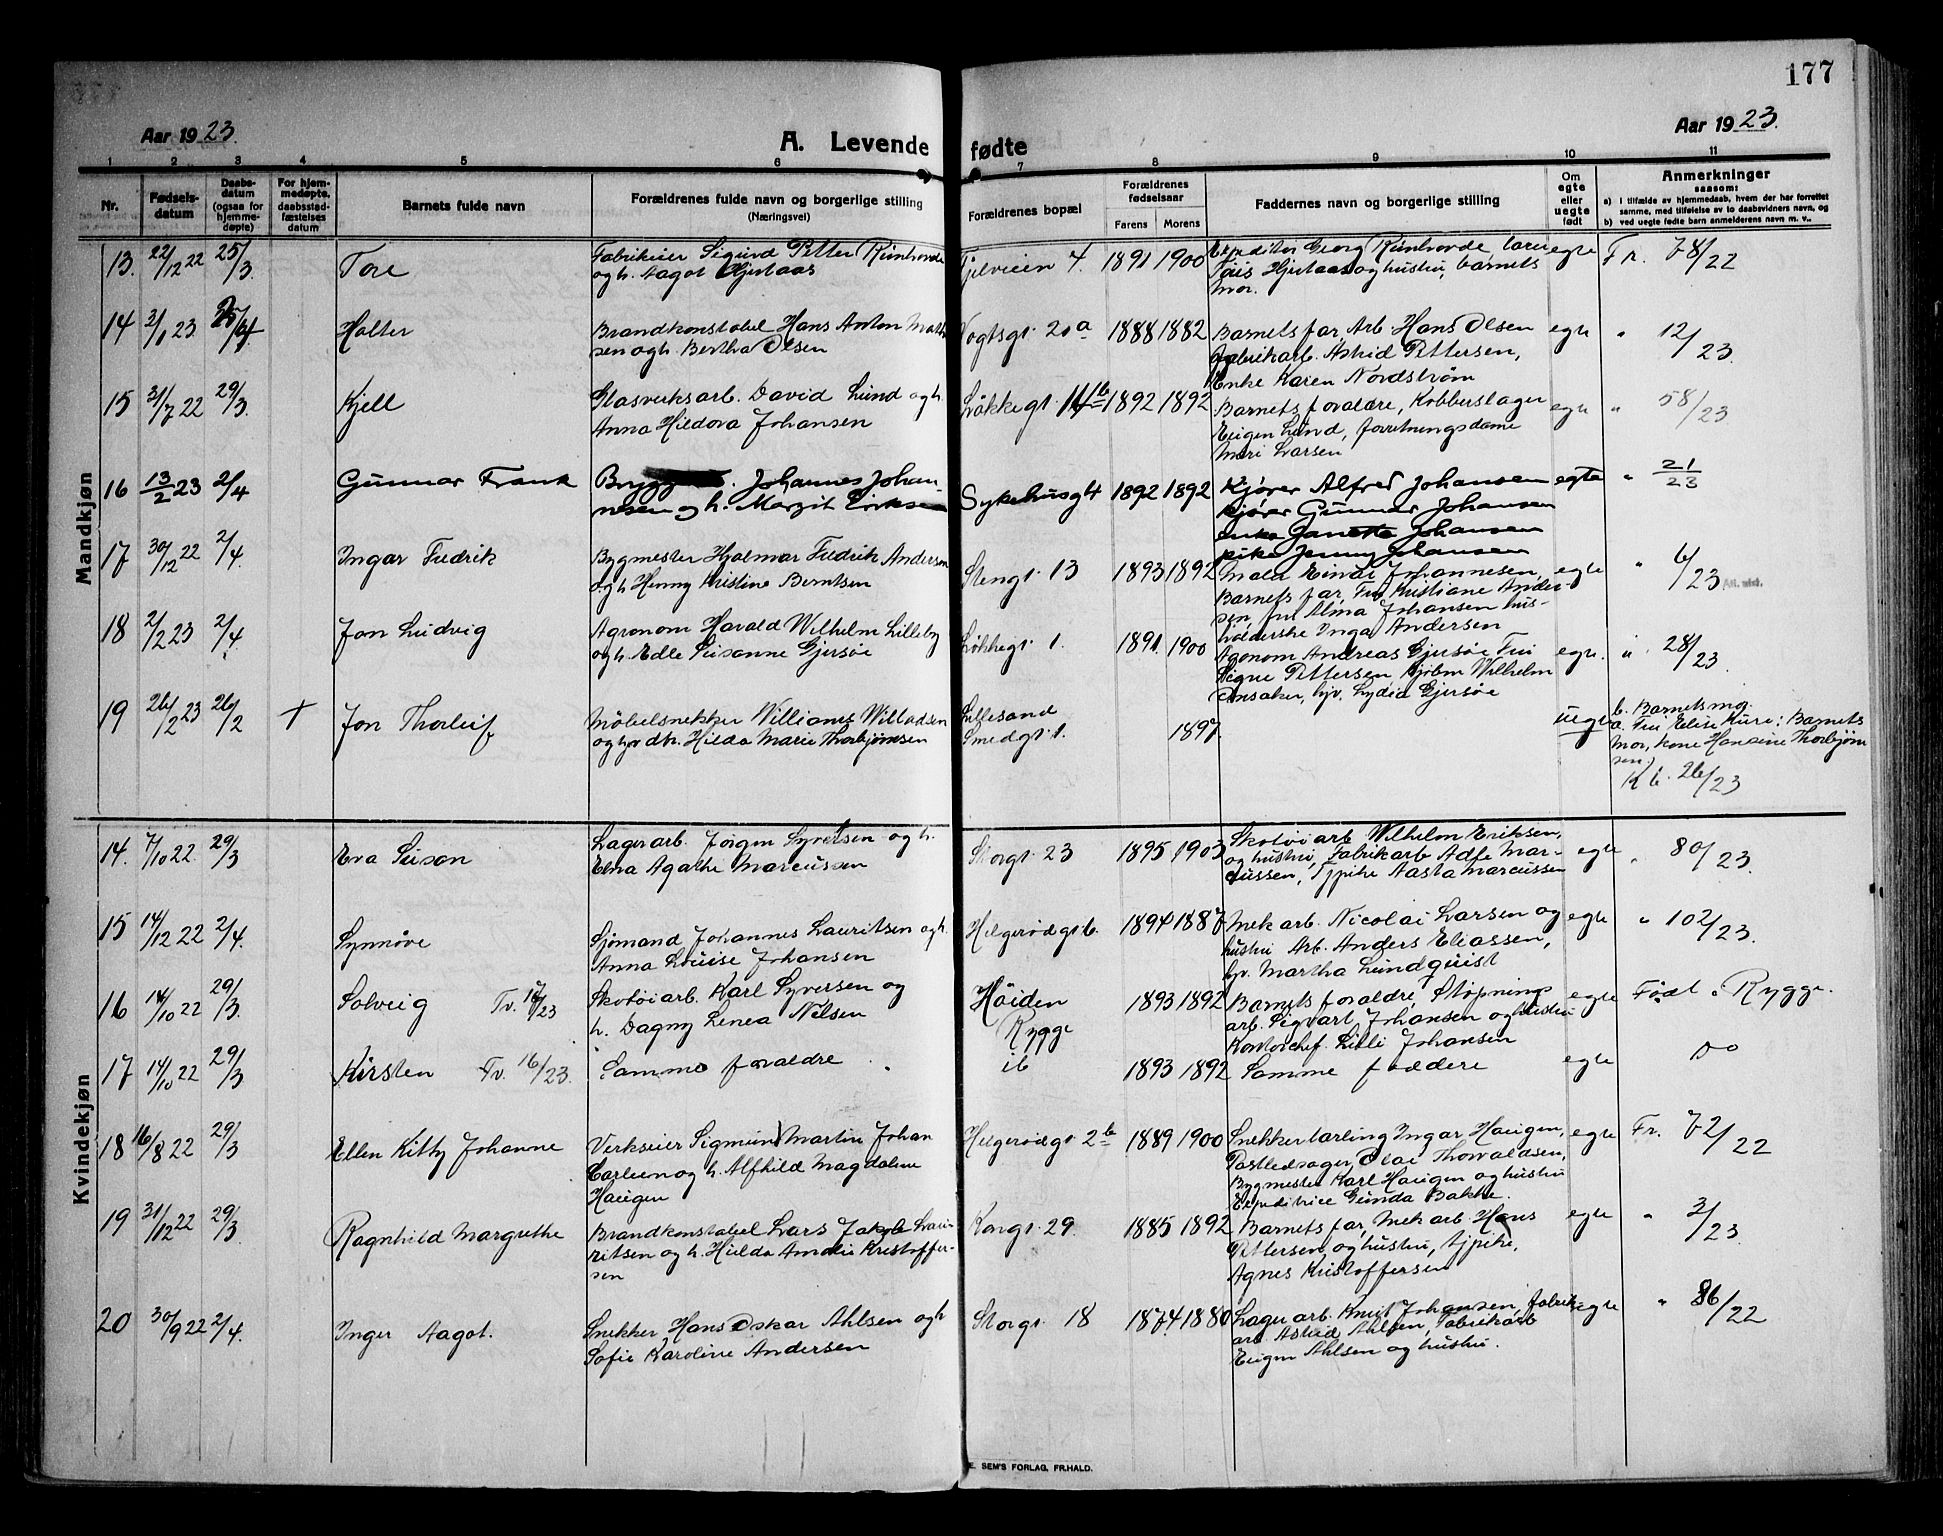 177
Aar 1923
A. Levende fødte
Aar 1923.
1 2 3 4 5 6 7 8 9 10 11
Nr.
Fødselsdatum
Daabsdatum (ogsaa for hjemmedøpte)
For hjemmedøpte, daabsstadfæstelses datum
Barnets fulde navn
Forældrenes fulde navn og borgerlige stilling
(Næringsvei)
Forældrenes bopæl
Forældrenes fødselsaar
Farens Morens
Faddernes navn og borgerlige stilling
Om egte eller uegte født
Anmerkninger
saasom:
a) I tilfælde av hjemmedaab, hvem der har forrettet samme, med tilføielse av to daabsvidners navn, og
b) ved uegte fødte barn anmelderens navn m. v..
Mandkjøn
13. 22/12 22 25/3. Tore
Fabrikeier Sigurd Petter Rimhovde
og h. Aagot Hjertaas
Tjelveien 4. 1891 1900
Expeditør Georg Rimhovde, lærer
Hjertaas og hustru, barnets
mor.
egte Fr. 78/22
14 2/1 23 Halter
Brandkonstabel Hans Anton Math
sen og h. Bertha Olsen
Vogtsgt. 20a 1888 1882
Barnets far, Arb Hans Olsen
fabrikarb. Astrid Pettersen,
Enke Karen Nordstrøm
egte " 12/23.
15 31/7 22 29/3. Kjell
Glasverksarb. David Lund og h.
Anna Hildora Johansen
Løkkegt. 1892 1892
Barnets foraldre, Kobberslager
Eugen Lund, forretningsdame
Meri Larsen
egte " 58/23
16 13/2 23 2/4 Gunnar Frank
Johannes Johan-
nesen og h. Margit Eriksen
Sykehusgt 4 1892 1892
Kjører Alfred Johansen
kjører Gunnar Johansen
enke Janette Johansen
pike Jenny Johansen
egte " 21/23
17 30/12 22 2/4. Ingar Fredrik
Bygmester Hjalmar Fredrik Andersen
og h Henny Kristine Berntsen
Stengt. 13 1893 1892
Maler Einar Johannesen,
Barnets far, Fru Kristiane Ander-
sen, fru Alma Johansen hus-
holderske Inga Andersen
egte " 6/23
18 2/2 23 2/4. Jon Ludvig
Agronom Harald Wilhelm Lilleby
og h. Edle Susanne Gjersøe
Løkkegt. 1. 1891. 1900
Agonom Andreas Gjersøe Fru
Signe Pettersen, Wilhelm
Onsaker, hjv. Lydia Gjersøe
egte. " 28/23.
19 26/2 23 26/2 + Jon Thorleif
Møbelsnekker William Willadsen
og hjv dtr. Hilda Marie Thorbjørnsen
Lillesand
Smedgt. 1. 1897
uegte
b. Barnets mor.
a. Fru Elise Kure: Barnets
Mor, kone Hansine Thorbjørn
sen.
K b. 26/23
Kvindekjøn
14. 7/10 22. 29/3 Eva Suson
Lagerarb. Jørgen Syvertsen og h.
Elna Agathe Marcussen
Storgt. 23 1895 1903
Skotøiarb Wilhelm Eriksen,
og hustru, Fabrikarb Adle Mar-
cussen, Tjpike Aasta Marcussen
egte " 80/23.
15 14/12 22 2/4. Synnøve
Sjømand Johannes Lauritsen og h.
Anna Louise Johansen
Helgerødgt 6. 1894 1887
Mek arb. Nicolai Larsen og
hustru Arb. Anders Eliassen,
hjv. Martha Lundquist
egte " 102/23.
16 14/10 22 29/3. Solveig Tv. 17/23
Skotøiarb. Karl Syversen og
h. Dagny Lenea Nilsen
Høiden
Rygge
1893 1892
Barnets foraldre, Støpnings
arb. Sigvart Johansen og hustru
Kontorchef. Lilli Johansen
egte Født i Rygge.
17 14/10 22 29/3. Kirsten Tv. 16/23.
Samme foraldre
ib 1893 1892
Samme faddere
egte Do
18 16/8 22 29/3 Ellen Kitty Johanne
Verkseier Sigmund Martin Johan
Carlsen og h. Alfhild Magdalene
Haugen
Helgerødgt 2b 1889 1900
Snekkerlærling Ingar Haugen,
Postledsager, Olai Thorvaldsen,
Bygmester Karl Haugen og hustru
Expeditrice Gunda Bakke.
egte Fr. 72/22
19 31/12 22 29/3. Ragnhild Margrethe
Brandkonstabel Lars Jakob Lau-
ritsen og h. Hilda Amalie Kristoffer-
sen
Kongt. 29. 1885 1892
Barnets far, Mek arb. Hans
Pettersen og hustru, tjpike,
Agnes Kristoffersen
egte " 3/23.
20 30/9 22 2/4. Inger Aagot.
Snekker Hans Oskar Ahlsen og h
Sofie Karoline Andersen
Storgt. 18 1874 1880
Lagerarb. Knut Johansen, fabrik-
arb Astrid Ahlsen, Fabrikarb
Eugen Ahlsen og hustru.
egte " 86/22
E. SEM'S FORLAG, FR.HALD.